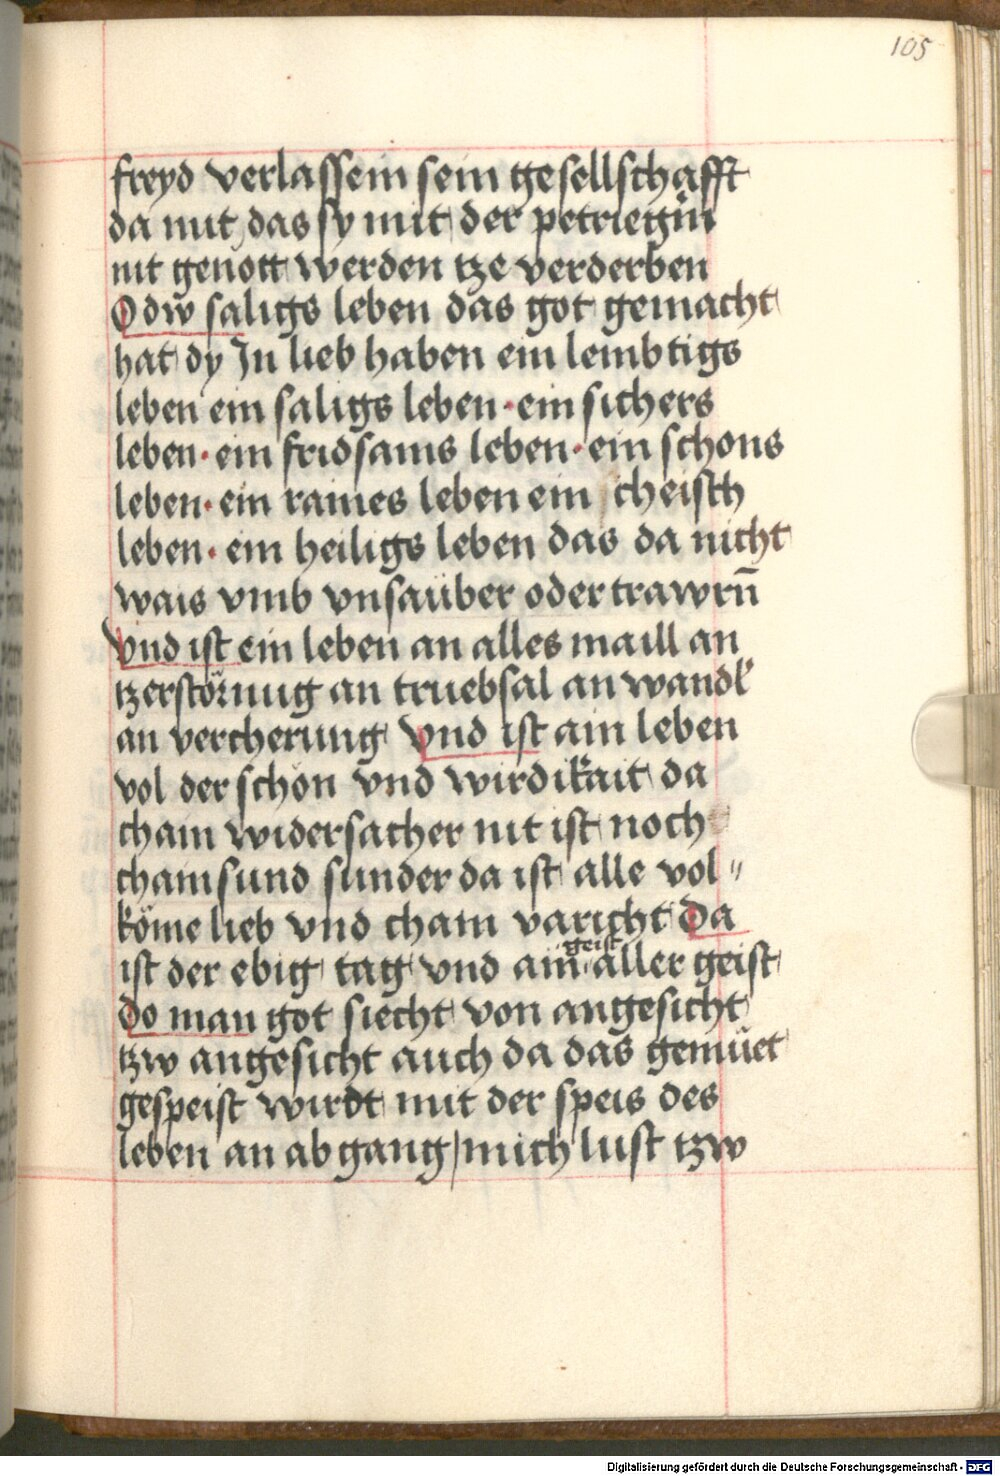 105
freyd verlassein sein gesellschafft
da mit das sy mit der petriegũ
nit genött werden tze verderben
O dw saligs leben das got gemacht
hat dy In lieb haben ein lembtigs
leben ein saligs leben · ein sichers
leben · ein fridsams leben · ein schons
leben · ein raines leben ein cheisch
leben · ein heiligs leben das da nicht
wais vmb vnsaüber oder trawrn̄
vnd ist ein leben an alles maill an
tzerstörnug an truebsal an wandl
an vercherung vnd ist ain leben
vol der schön vnd wirdikait da
cham widersacher nit ist noch
cham sund sunder da ist alle vol〃
köme lieb vnd cham varicht Da
ist der ebig tag vnd ain geist aller geist
do man got siecht von angesicht
tzw angesicht auch da das gemüet
gespeist wirdt mit der speis des
leben an ab gang / mich lust tzw
Digitalisierung gefördert durch die Deutsche Forschungsgemeinschaft - DFG